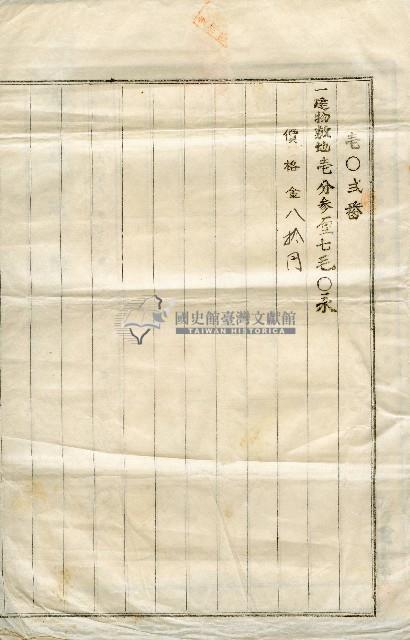 壱〇弍番
一建物敷地壱分参厘七毛〇糸
價格金八拾円
國史館臺灣文獻館
TAIWAN HISTORICA